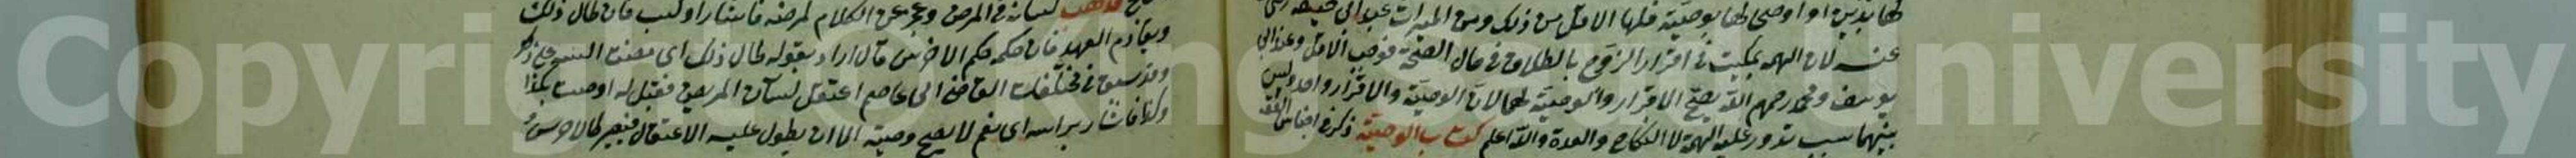 لها بدين او اوصى لها بوصية فلها الاقل من ذلك ومن الميراث عند ابى حنيفة رضى
عنه لان التهمة تمكنت فى اقرار الزوج بالطلاق فى حال الصحة فوجب الاقل وعند ابى
يوسف ومحمد رحمهم الله يصح الاقرار والوصية لها لان الوصية والاقرار واحد وليس
بينهما سبب تدور عليه التهمة لا النكاح والعدة والله اعلم كتاب الوصية ذكر فى اجناس الفقه
لسانه فى المرض وعجز عن الكلام لمرضه فاشار او كتب فان طال ذلك
وتقادم العهد فان حكمه حكم الاخرس قال اراد بقوله طال ذلك اى مضت السنة
وقد سبق فى مختلفات القاضى ابى عاصم اعتقل لسان المريض فقيل له اوصيت بكذا
وكذا فاشار براسه اى نعم لا يصح وصيته الا ان يطول عليه الاعتقال فيصير كالاخرس
Copyright © King Saud University